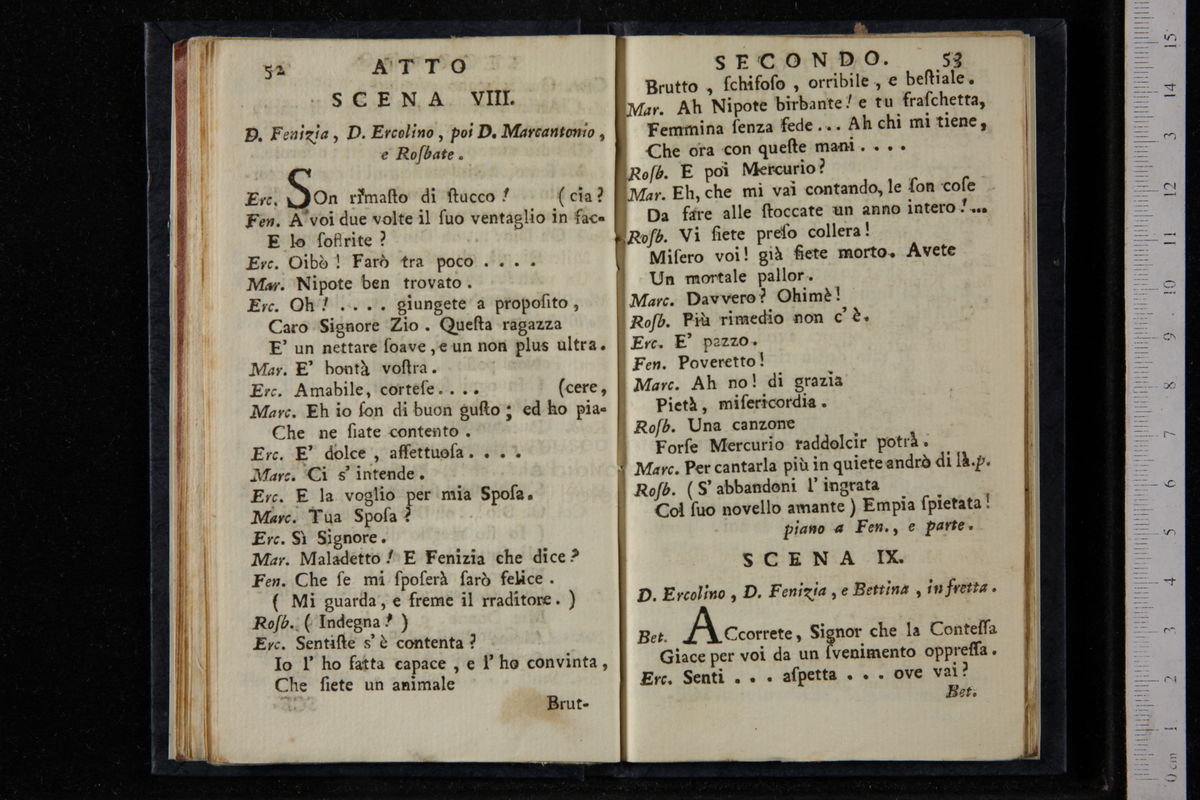 52 ATTO
SCENA VIII.
D. Fenizia, D. Ercolino, poi D. Marcantonio,
e Roſbate.
Erc. SOn rimaſto di ſtucco! (cia?
Fen. A voi due volte il ſuo ventaglio in fac-
E lo ſoffrite?
Erc. Oibò! Farò tra poco . . . .
Mar. Nipote ben trovato.
Erc. Oh! . . . . giungete a propoſito,
Caro Signore Zio. Queſta ragazza
E' un nettare ſoave, e un non plus ultra.
Mar. E' bontà voſtra.
Erc. Amabile, corteſe. . . . (cere,
Marc. Eh io ſon di buon guſto; ed ho pia-
Che ne ſiate contento.
Erc. E' dolce, affettuoſa. . . .
Marc. Ci s'intende.
Erc. E la voglio per mia Spoſa.
Marc. Tua Spoſa?
Erc. Sì Signore.
Mar. Maladetto! E Fenizia che dice?
Fen. Che ſe mi ſpoſerà ſarò felice.
( Mi guarda, e freme il rraditore. )
Roſb. ( Indegna! )
Erc. Sentiſte s'è contenta?
Io l'ho fatta capace, e l'ho convinta,
Che ſiete un animale
Brut-
SECONDO. 53
Brutto, ſchifoſo, orribile, e beſtiale.
Mar. Ah Nipote birbante! e tu fraſchetta,
Femmina ſenza fede... Ah chi mi tiene,
Che ora con queſte mani . . . .
Roſb. E poi Mercurio?
Mar. Eh, che mi vai contando, le ſon coſe
Da fare alle ſtoccate un anno intero!...
Roſb. Vi ſiete preſo collera!
Miſero voi! già ſiete morto. Avete
Un mortale pallor.
Marc. Davvero? Ohimè!
Roſb. Più rimedio non c'è.
Erc. E' pazzo.
Fen. Poveretto!
Marc. Ah no! di grazia
Pietà, miſericordia.
Roſb. Una canzone
Forſe Mercurio raddolcir potrà.
Marc. Per cantarla più in quiete andrò di là. p.
Roſb. ( S'abbandoni l'ingrata
Col ſuo novello amante ) Empia ſpietata!
piano a Fen., e parte.
SCENA IX.
D. Ercolino, D. Fenizia, e Bettina, in fretta.
Bet. ACcorrete, Signor che la Conteſſa
Giace per voi da un ſvenimento oppreſſa.
Erc. Senti . . . aſpetta . . . ove vai?
Bet.
0 cm 1 2 3 4 5 6 7 8 9 10 11 12 13 14 15